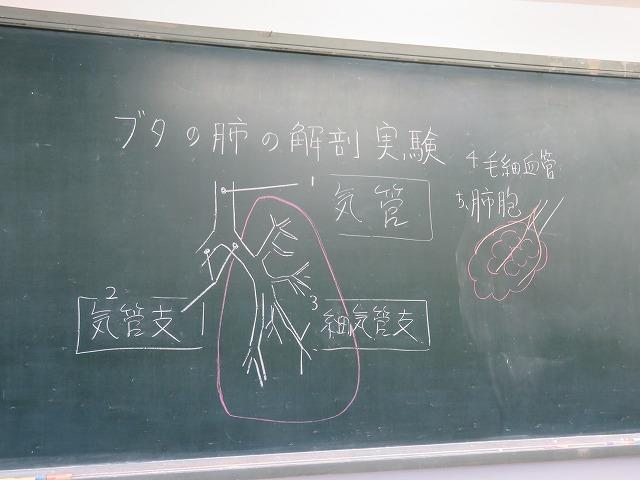 ブタの肺の解剖実験
1
気管
2
気管支
3
細気管支
4 毛細血管
5、肺胞